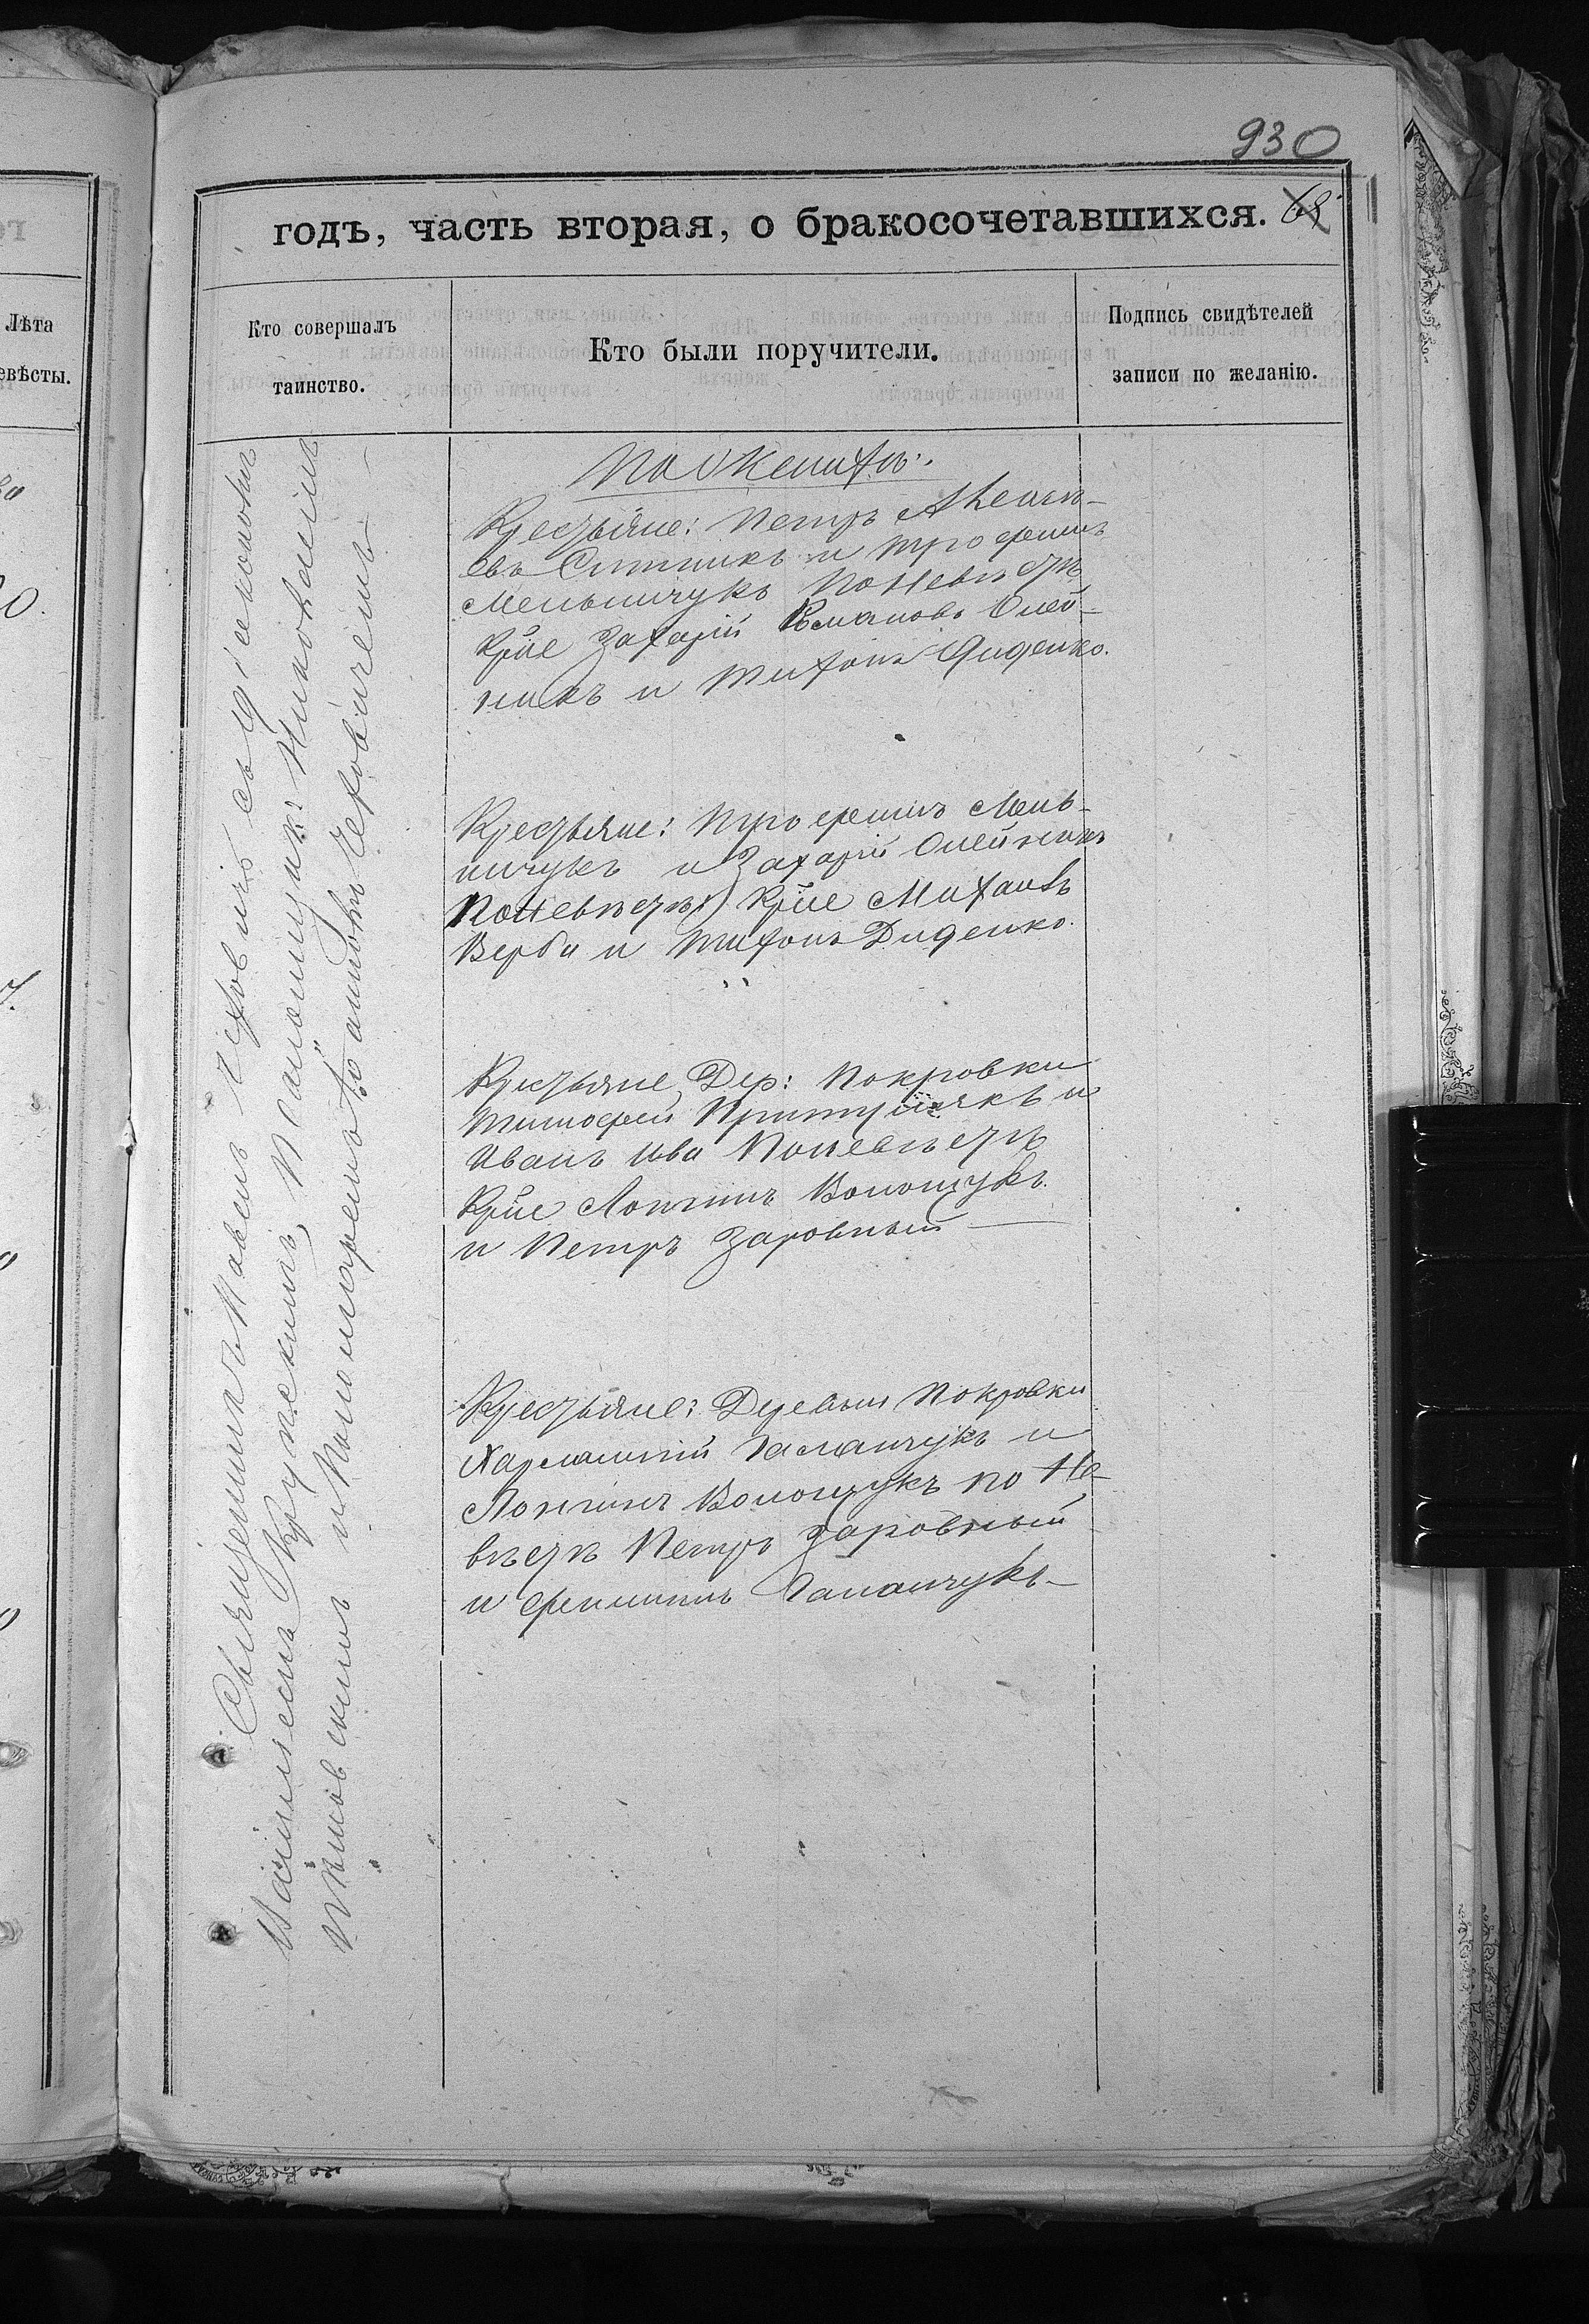 930
годъ, часть вторая, о бракосочетавшихся. 68
Лѣта
евѣсты.
Кто совершалъ
таинство.
Кто были поручители.
Подпись свидѣтелей
записи по желанію.
Священникъ Павелъ Чеховичъ съ Діакономъ
Крупскимъ, Псаломщик: Николаемъ
и Пономаремъ Чеховичемъ
По Женихѣ:
Крестьяне: Петръ Алексѣ-
евъ Ситникъ и Трофимъ
Мельничукъ По Невѣстѣ
Кр̃не Захарій Романовъ Олей-
никъ и Тихонъ Диденко.
Крестьяне: Трофимъ Мель-
ничукъ и Захарій Олейникъ
По Невѣстѣ) Кр̃не Михаилъ
Верба и Тихонъ Диденко.
Крестьяне Дер: Покровки
Тимофей и
Иванъ По невѣстѣ
Кр̃не Лонгинъ Волощукъ
и Петръ Заровный
Крестьяне: Деревни Покровки
Харлампій и
Лонгинъ Волощукъ по Не-
вѣстѣ Петръ Заровный
и Филиппъ